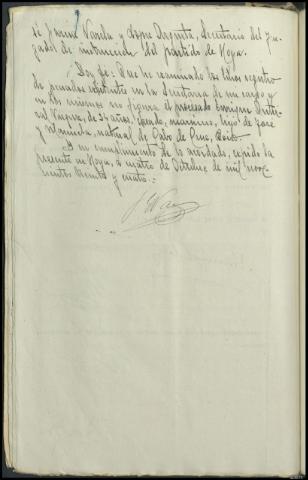 Secretario del Juz-
gado de instrucción del partido de Noya.
Doy fe: Que he examinado los libros registro
de penados existentes en la Secretaría de mi cargo y
en los mismos no figura el procesado Enrique
de 34 años, marinero, hijo de José
y Manuela, natural de Cabo de Cruz, Boiro.
Y en cumplimiento de lo acordado, expido la
presente en Noya, a cuatro de Octubre de mil nove-
cientos treinta y cuatro.-